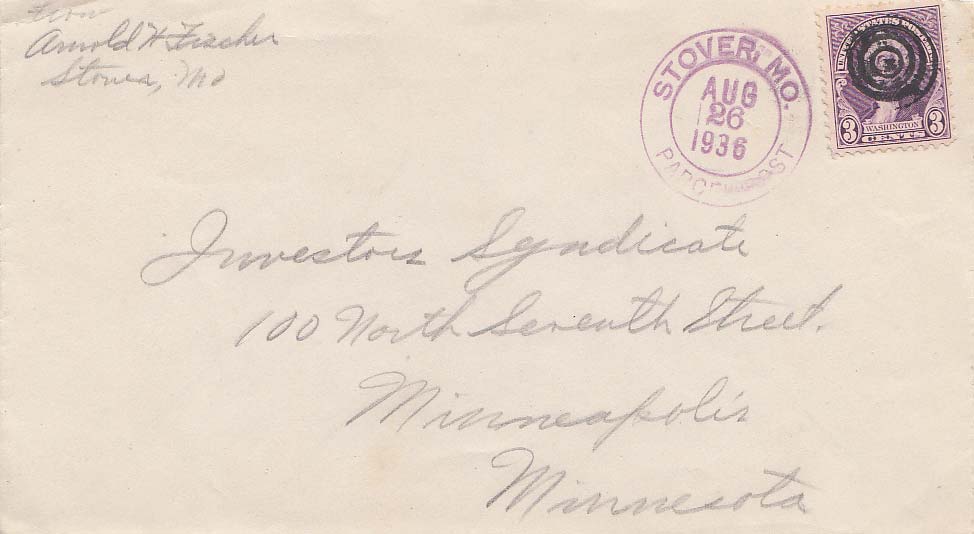 from
Arnold H Fischer
Stover, Mo
STOVER, MO.
AUG
26
1936
PARCEL POST
UNITED STATES POSTAGE
3 WASHINGTON 3
CENTS
Investors Syndicate
100 North Seventh Street.
Minneapolis
Minnesota